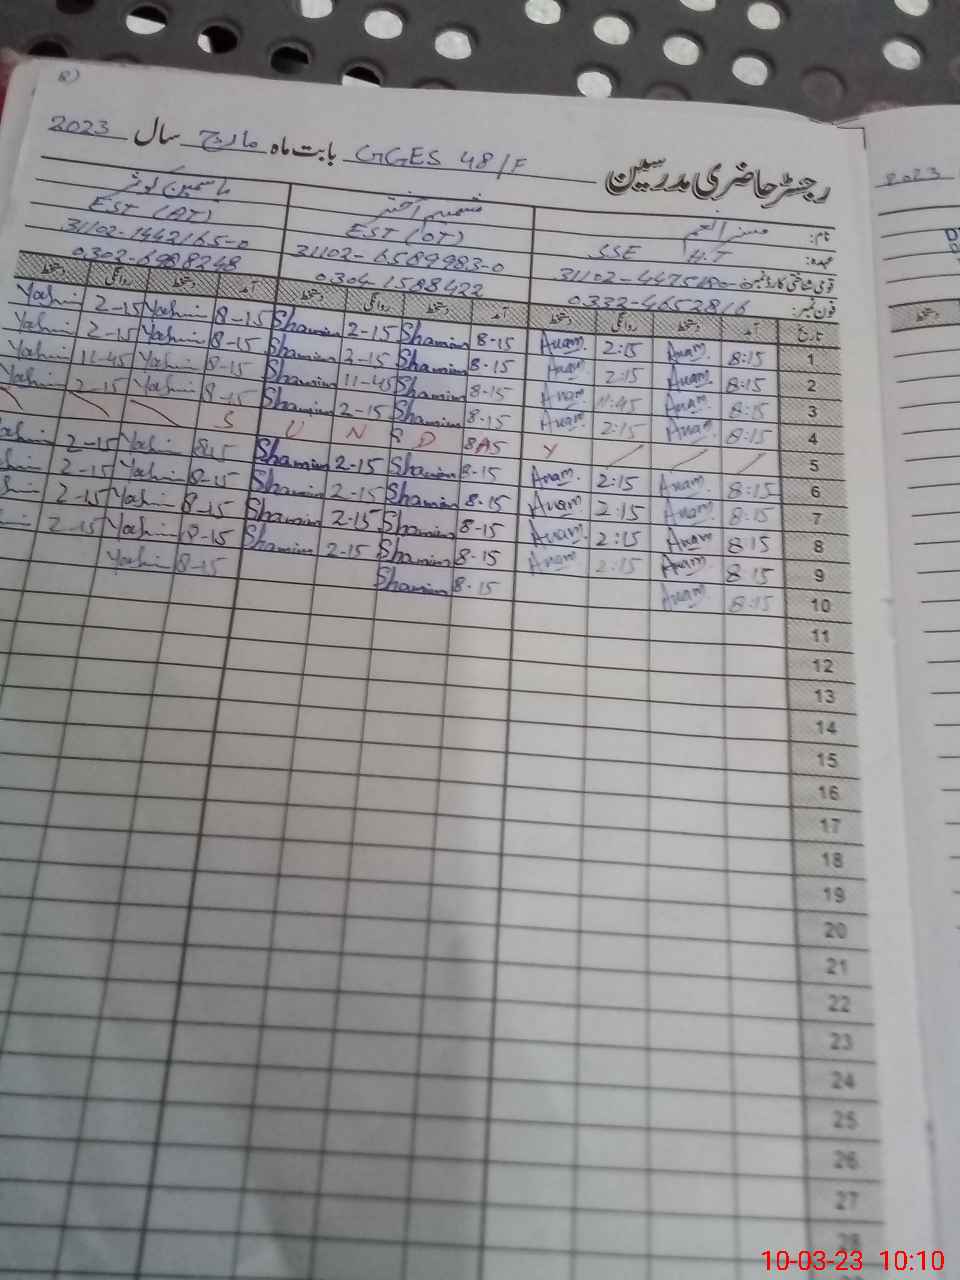 رجسٹر حاضری مدرسین GGES 48/F بابت ماہ مارچ سال 2023
2023
نام: شمیم اختر یاسمین کوثر
عہدہ: SSE H.T EST (OT) EST (AT)
قومی شناختی کارڈ نمبر: 31102-6589983-0 31102-1442165-0
فون نمبر: 0332-4652816 0304 1588422 0302-6988248
تاریخ آمد دستخط روانگی دستخط آمد دستخط روانگی دستخط آمد دستخط روانگی دستخط
1 8:15 Anam 2:15 Anam 8-15 Shamim 2-15 Shamim 8-15 Yashmi 2-15 Yashmi
2 8:15 Anam 2:15 Anam 8-15 Shamim 2-15 Shamim 8-15 Yashmi 2-15 Yashmi
3 8:15 Anam 11:45 Anam 8-15 Shamim 11-45 Shamim 8-15 Yashmi 11-45 Yashmi
4 8:15 Anam 2:15 Anam 8-15 Shamim 2-15 Shamim 8-15 Yashmi 2-15 Yashmi
5 S U N D A Y
6 8:15 Anam 2:15 Anam 8-15 Shamim 2-15 Shamim 8-15 Yashmi 2-15
7 8:15 Anam 2:15 Anam 8-15 Shamim 2-15 Shamim 8-15 Yashmi 2-15
8 8:15 Anam 2:15 Anam 8-15 Shamim 2-15 Shamim 8-15 Yashmi 2-15
9 8:15 Anam 2:15 Anam 8-15 Shamim 2-15 Shamim 8-15 Yashmi 2-15
10 8:15 Anam 8-15 Shamim 8-15 Yashmi
11
12
13
14
15
16
17
18
19
20
21
22
23
24
25
26
27
28
10-03-23 10:10